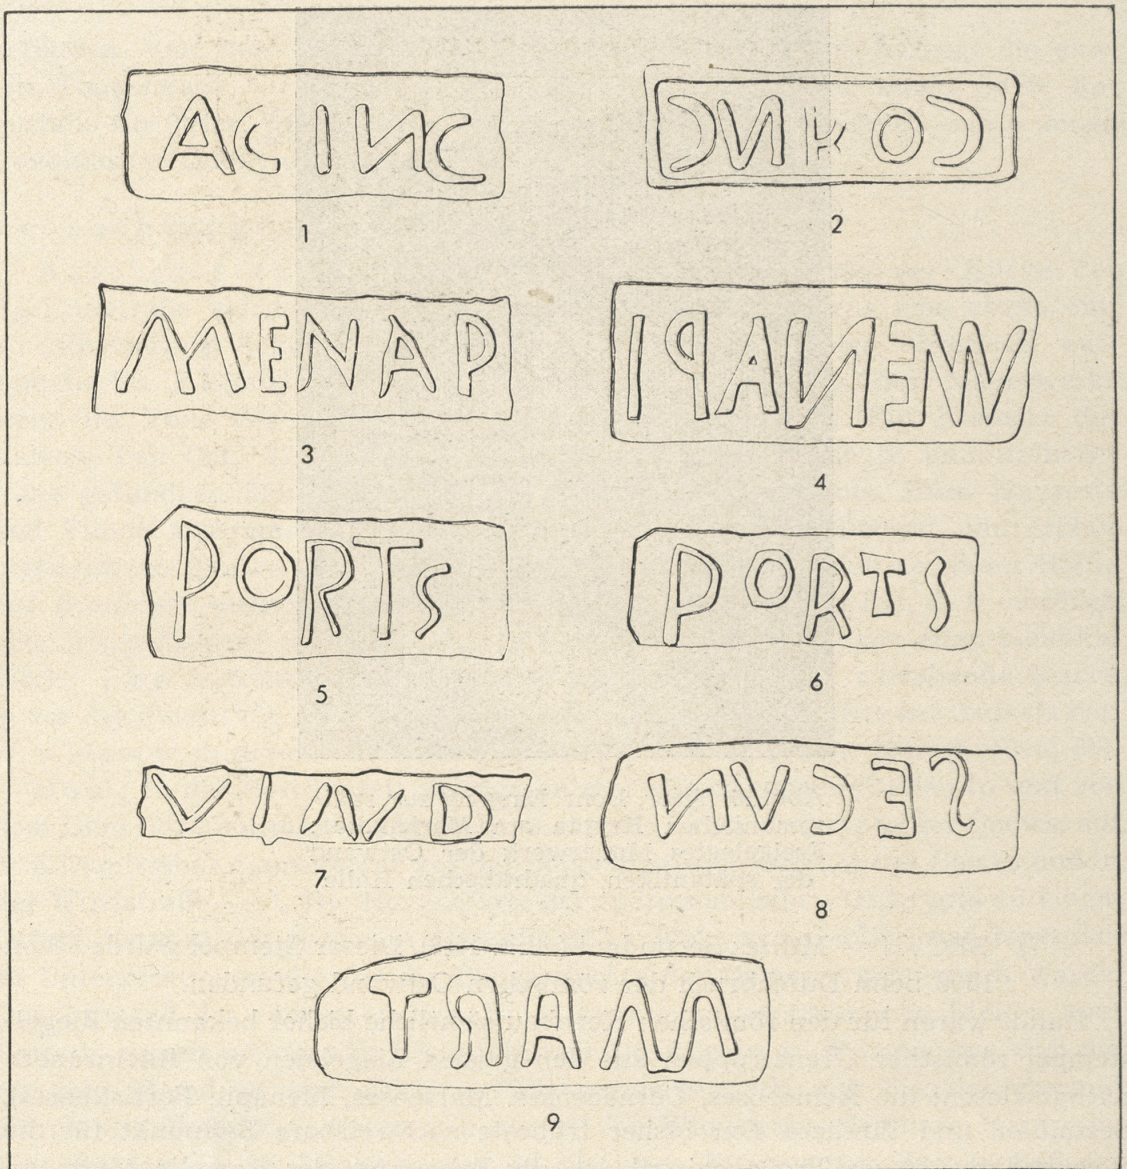 ACINC
1
2
MENAP
3
MENAPI
4
PORTS
5
PORTS
6
VIND
7
SECVN
8
MART
9